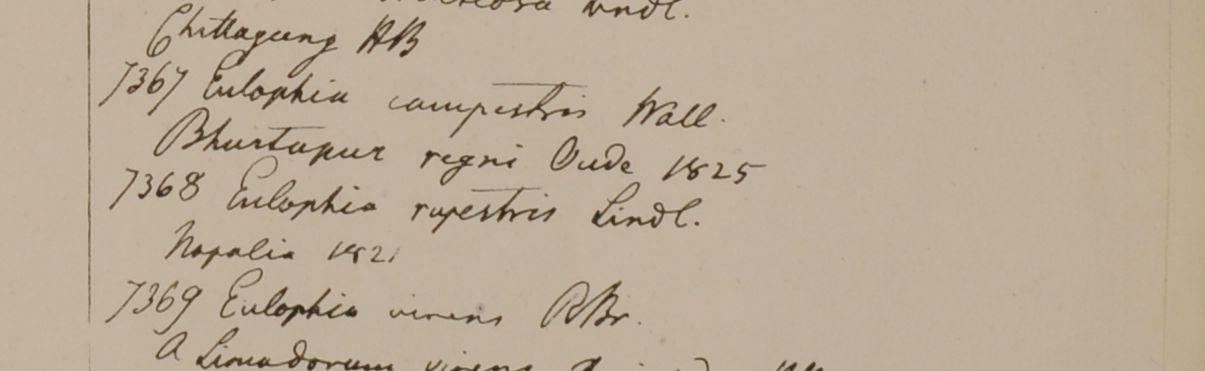 Lindl.
Chittagung HB
7367 Eulophia campestris Wall.
Bhurtapur regni Oude 1825
7368 Eulophia rupestris Lindl.
Napalia 1821
7369 Eulophia virens RBr.
A Limadorum virens